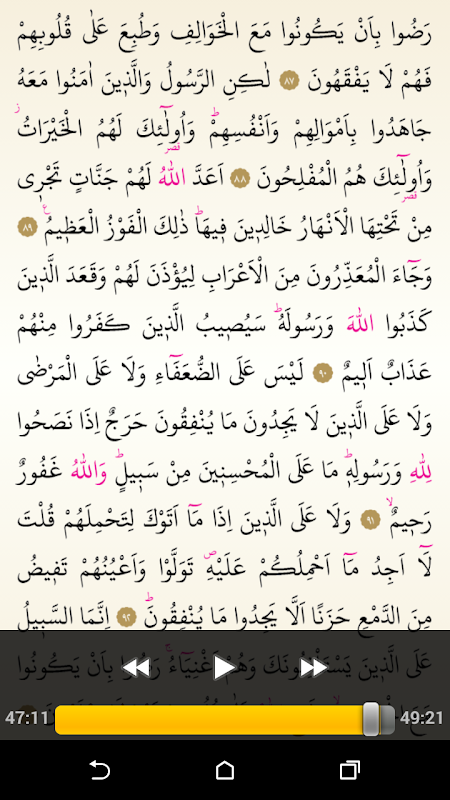 رَضُوا بِاَنْ يَكُونُوا مَعَ الْخَوَالِفِ وَطُبِعَ عَلٰى قُلُوبِهِمْ
فَهُمْ لَا يَفْقَهُونَ ٨٧ لٰكِنِ الرَّسُولُ وَالَّذ۪ينَ اٰمَنُوا مَعَهُ
جَاهَدُوا بِاَمْوَالِهِمْ وَاَنْفُسِهِمْۜ وَاُو۬لٰٓئِكَ لَهُمُ الْخَيْرَاتُۘ
وَاُو۬لٰٓئِكَ هُمُ الْمُفْلِحُونَ ٨٨ اَعَدَّ اللّٰهُ لَهُمْ جَنَّاتٍ تَجْر۪ي
مِنْ تَحْتِهَا الْاَنْهَارُ خَالِد۪ينَ ف۪يهَاۜ ذٰلِكَ الْفَوْزُ الْعَظ۪يمُ ٨٩
وَجَٓاءَ الْمُعَذِّرُونَ مِنَ الْاَعْرَابِ لِيُؤْذَنَ لَهُمْ وَقَعَدَ الَّذ۪ينَ
كَذَبُوا اللّٰهَ وَرَسُولَهُۜ سَيُص۪يبُ الَّذ۪ينَ كَفَرُوا مِنْهُمْ
عَذَابٌ اَل۪يمٌ ٩٠ لَيْسَ عَلَى الضُّعَفَٓاءِ وَلَا عَلَى الْمَرْضٰى
وَلَا عَلَى الَّذ۪ينَ لَا يَجِدُونَ مَا يُنْفِقُونَ حَرَجٌ اِذَا نَصَحُوا
لِلّٰهِ وَرَسُولِه۪ۜ مَا عَلَى الْمُحْسِن۪ينَ مِنْ سَب۪يلٍۜ وَاللّٰهُ غَفُورٌ
رَح۪يمٌۙ ٩١ وَلَا عَلَى الَّذ۪ينَ اِذَا مَٓا اَتَوْكَ لِتَحْمِلَهُمْ قُلْتَ
لَٓا اَجِدُ مَٓا اَحْمِلُكُمْ عَلَيْهِۖ تَوَلَّوْا وَاَعْيُنُهُمْ تَف۪يضُ
مِنَ الدَّمْعِ حَزَنًا اَلَّا يَجِدُوا مَا يُنْفِقُونَۜ ٩٢ اِنَّمَا السَّب۪يلُ
عَلَى الَّذ۪ينَ يَسْتَأْذِنُونَكَ وَهُمْ اَغْنِيَٓاءُۚ رَضُوا بِاَنْ يَكُونُوا
47:11 49:21